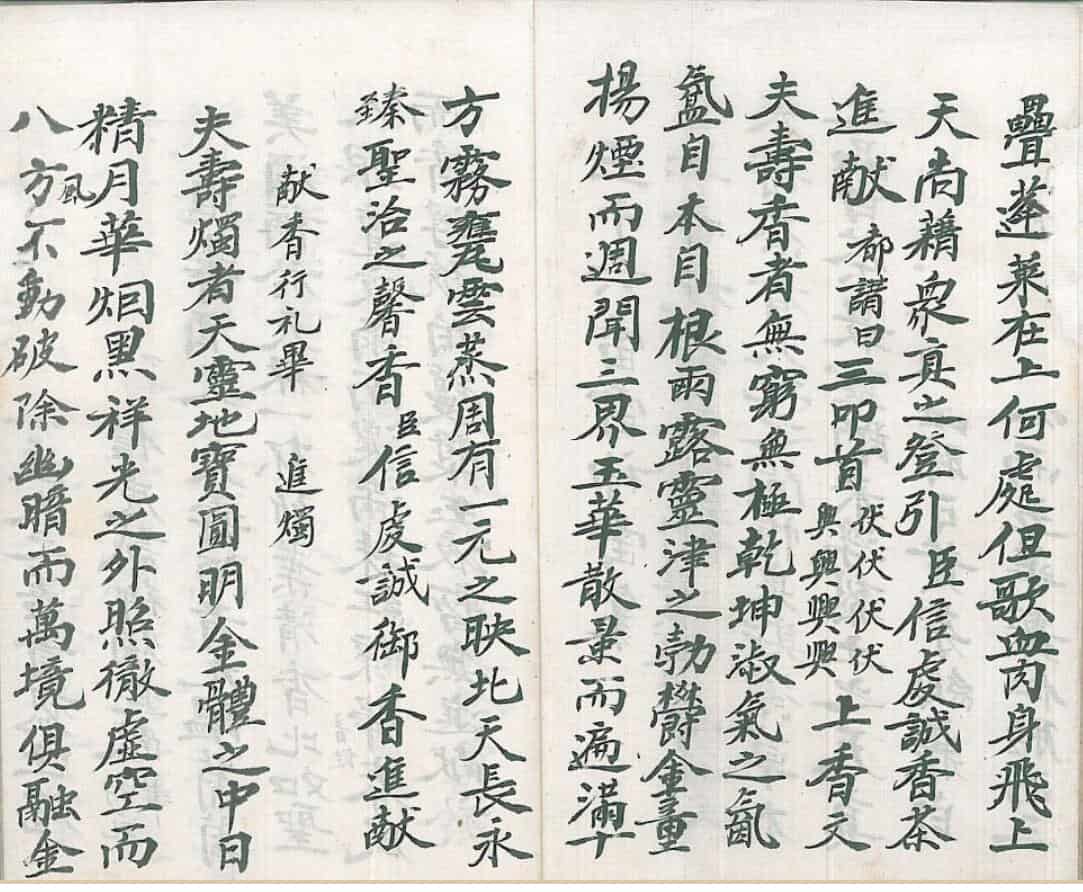 疊蓬萊在上何處但歌血肉身飛上
天尚藉眾真之登引臣信虔誠香茶
進献都講曰三叩首伏興伏興伏興伏興上香文
夫壽香者無窮無極乾坤淑氣之氤
氳自本自根雨露靈津之勃欝金童
揚煙而週聞三界玉華散景而遍滿十
方霧甕雲蒸周有一元之映北天長永
臻聖治之馨香臣信虔誠御香進献
献香行礼畢 進燭
夫壽燭者天靈地寶圓明金體之中日
精月華烟黑祥光之外照徹虛空而
八方風不動破除幽暗而萬境俱融金